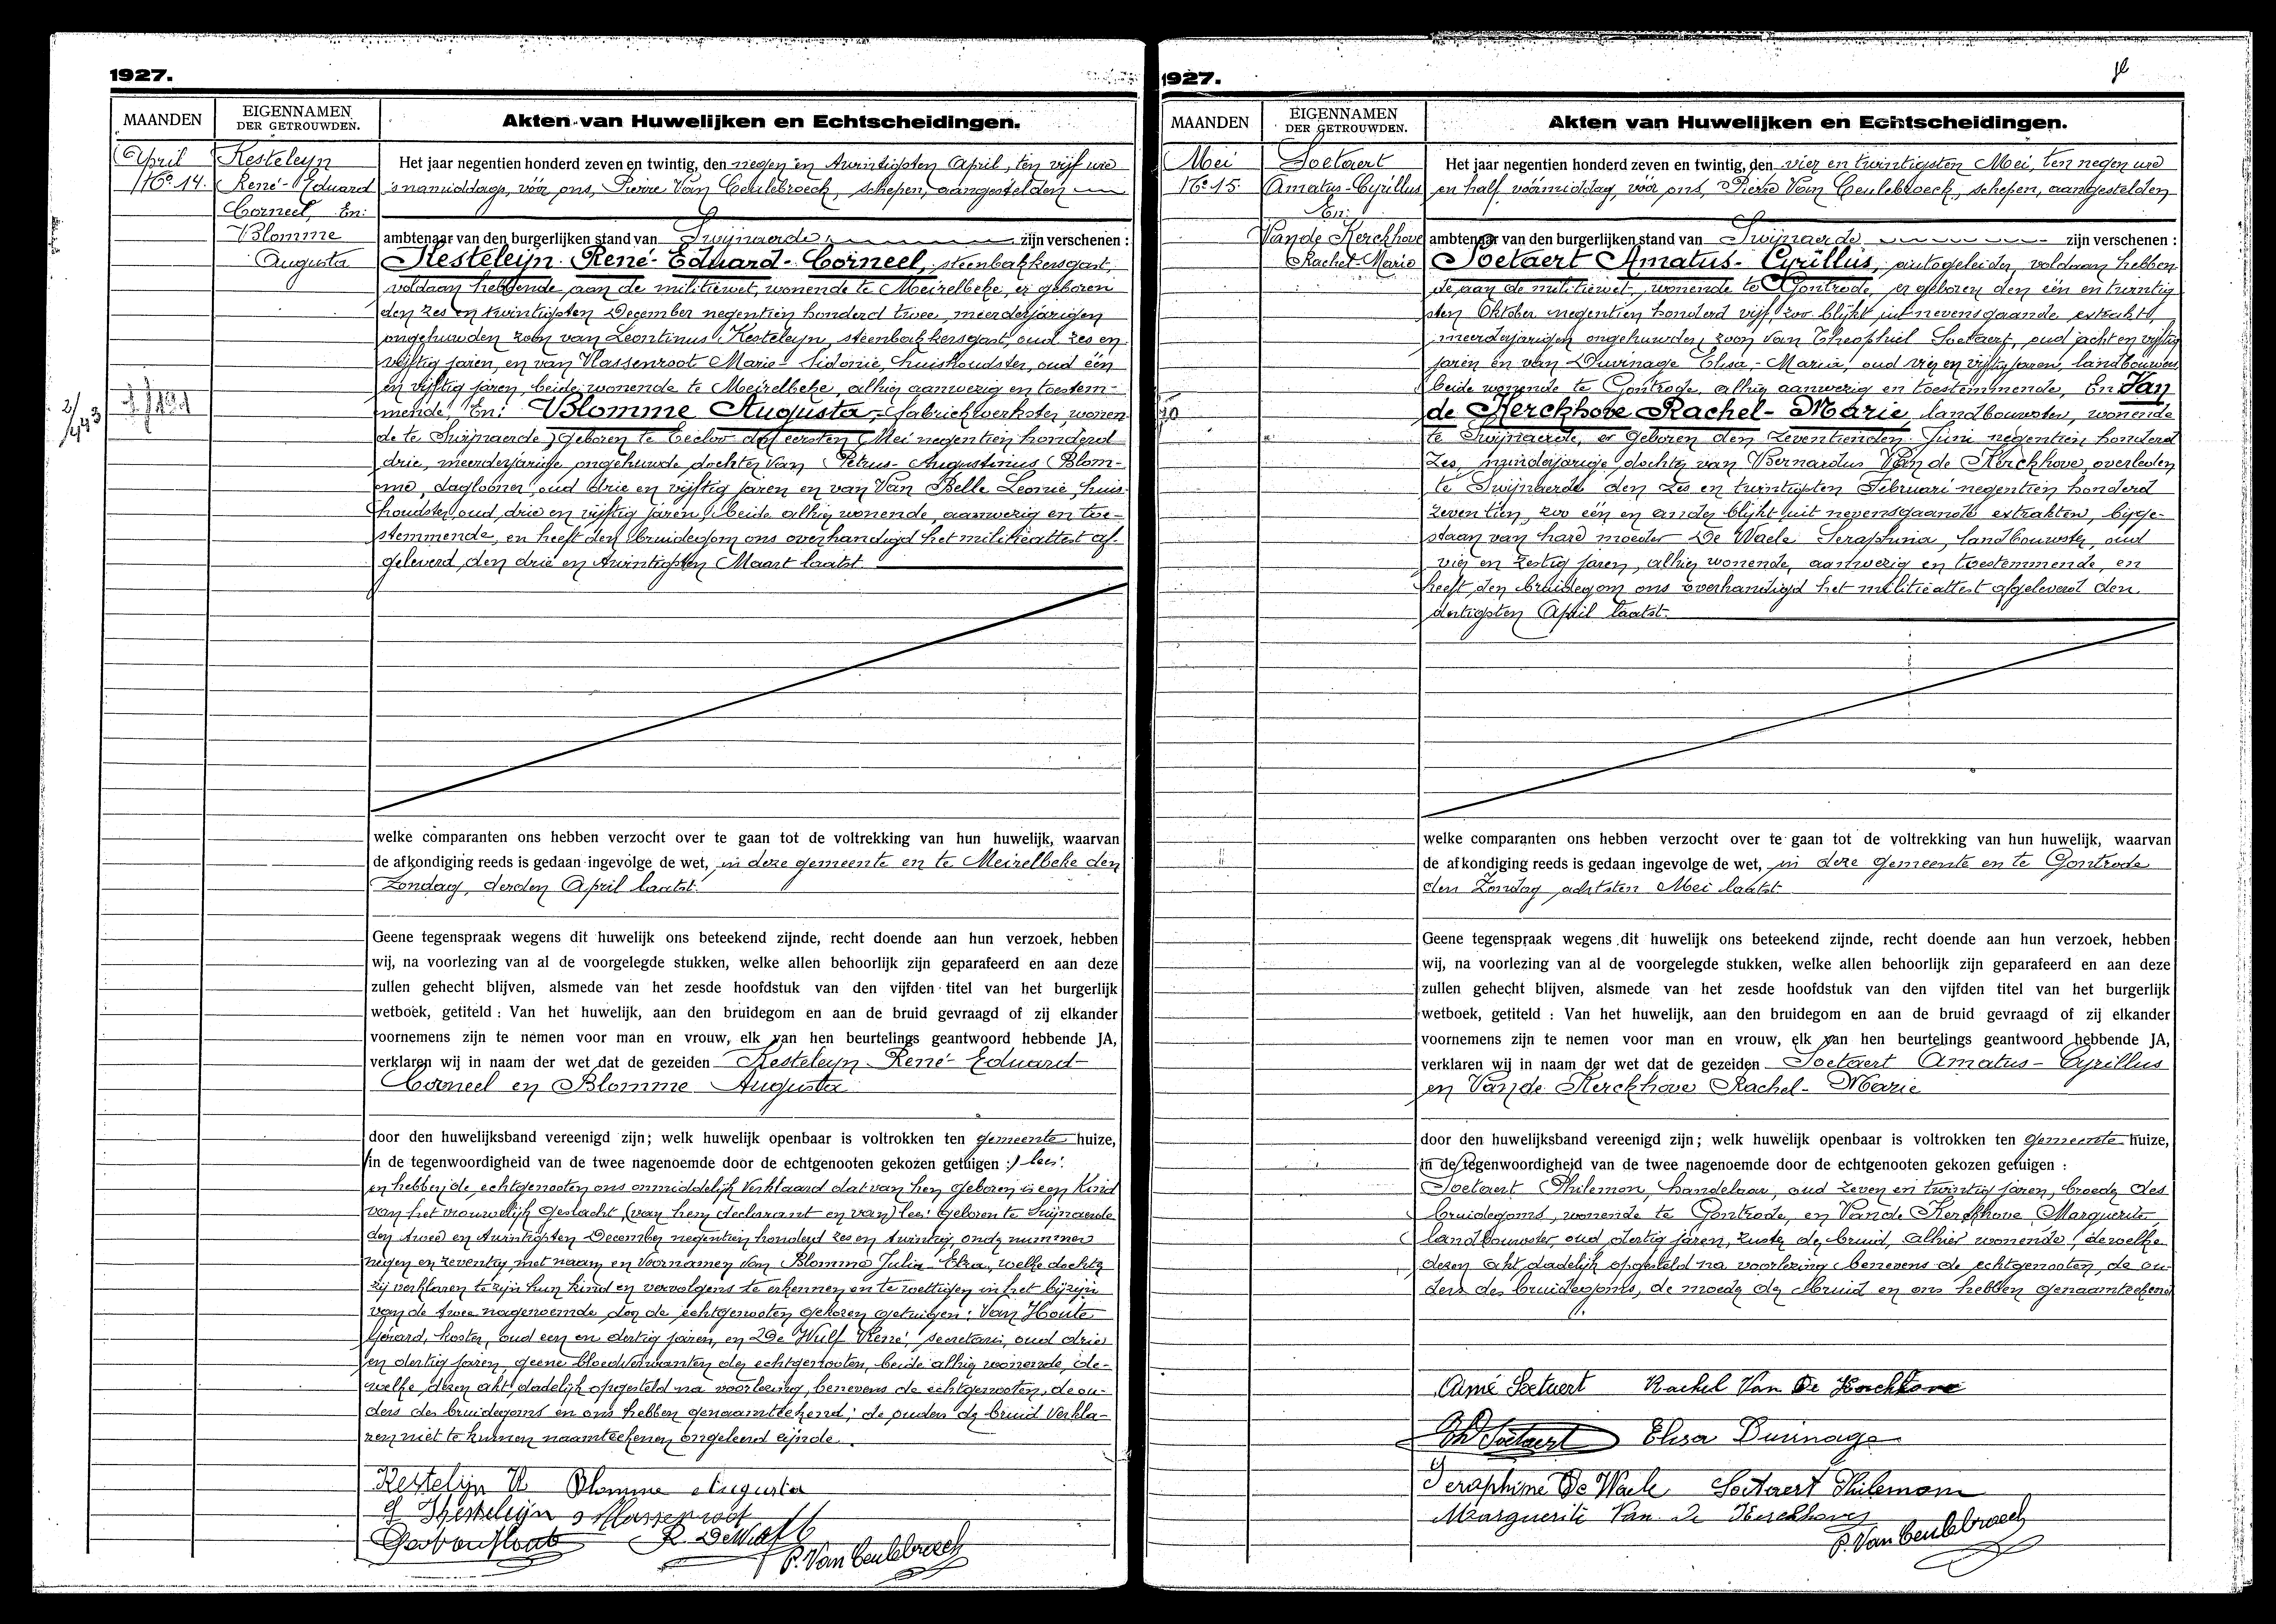 1927.
MAANDEN
EIGENNAMEN
DER GETROUWDEN.
Akten van Huwelijken en Echtscheidingen.
April
No 14.
Kesteleyn
René-Eduard
Corneel, En:
Blomme
Augusta
Het jaar negentien honderd zeven en twintig, den negen en twintigsten April, ten vijf ure
's namiddags, vóór ons, Pierre Van Ceulebroeck, schepen, aangestelden
ambtenaar van den burgerlijken stand van Swijnaerde zijn verschenen :
Kesteleyn René-Eduard-Corneel, steenbakkersgast,
voldaan hebbende aan de militiewet, wonende te Meirelbeke, er geboren
den zes en twintigsten December negentien honderd twee, meerderjarigen
ongehuwden zoon van Leontinus Kesteleyn, steenbakkersgast, oud zes en
vijftig jaren, en van Vlassenroot Marie-Sidonie, huishoudster, oud één
en vijftig jaren, beide wonende te Meirelbeke, alhier aanwezig en toestem-
mende. En: Blomme Augusta, fabriekwerkster, wonen-
de te Swijnaerde, geboren te Eecloo den eersten Mei negentien honderd
drie, meerderjarige ongehuwde dochter van Petrus-Augustinus Blom-
me, daglooner, oud drie en vijftig jaren en van Van Belle Leonie, huis-
houdster, oud drie en vijftig jaren, beide alhier wonende, aanwezig en toe-
stemmende, en heeft den bruidegom ons overhandigd het militieattest af-
geleverd den drie en twintigsten Maart laatst
welke comparanten ons hebben verzocht over te gaan tot de voltrekking van hun huwelijk, waarvan
de afkondiging reeds is gedaan ingevolge de wet, in deze gemeente en te Meirelbeke den
Zondag, derden April laatst.
Geene tegenspraak wegens dit huwelijk ons beteekend zijnde, recht doende aan hun verzoek, hebben
wij, na voorlezing van al de voorgelegde stukken, welke allen behoorlijk zijn geparafeerd en aan deze
zullen gehecht blijven, alsmede van het zesde hoofdstuk van den vijfden titel van het burgerlijk
wetboek, getiteld : Van het huwelijk, aan den bruidegom en aan de bruid gevraagd of zij elkander
voornemens zijn te nemen voor man en vrouw, elk van hen beurtelings geantwoord hebbende JA,
verklaren wij in naam der wet dat de gezeiden Kesteleyn René-Eduard-
Corneel en Blomme Augusta
door den huwelijksband vereenigd zijn; welk huwelijk openbaar is voltrokken ten gemeente huize,
in de tegenwoordigheid van de twee nagenoemde door de echtgenooten gekozen getuigen :) lees:
en hebben de echtgenooten ons onmiddelijk verklaard dat van hen geboren is een kind
van het vrouwelijk geslacht, (van hem declarant en van) lees: geboren te Swijnaerde
den twee en twintigsten December negentien honderd zes en twintig, onder nummer
negen en zeventig met naam en voornamen van Blomme Julia Elza, welke dochter
zij verklaren te zijn hun kind en vervolgens te erkennen en te wettigen in het bijzijn
van de twee nagenoemde door de echtgenooten gekozen getuigen: Van Houte
Gérard, koster, oud een en dertig jaren, en De Wulf René, secretaris, oud drie
en dertig jaren, geene bloedverwanten der echtgenooten, beide alhier wonende, de-
welke dezen akt, dadelijk opgesteld na voorlezing, benevens de echtgenooten, de ou-
ders des bruidegoms en ons hebben genaamteekend; de ouders der bruid verkla-
ren niet te kunnen naamteekenen ongeleerd zijnde.
Kestelijn R Blomme Augusta
Kesteleyn Vlassenroot
R. DeWulf
P. Van Ceulebroeck
1927.
MAANDEN
EIGENNAMEN
DER GETROUWDEN.
Akten van Huwelijken en Echtscheidingen.
Mei
No 15.
Soetaert
Amatus-Cyrillus
En:
Van de Kerckhove
Rachel-Marie
Het jaar negentien honderd zeven en twintig, den vier en twintigsten Mei, ten negen ure
en half voormiddag, vóór ons, Pierre Van Ceulebroeck, schepen, aangestelden
ambtenaar van den burgerlijken stand van Swijnaerde zijn verschenen :
Soetaert Amatus-Cyrillus, autogeleider, voldaan hebben-
de aan de militiewet, wonende te Gontrode, er geboren den één en twintig-
sten Oktober negentien honderd vijf, zoo blijkt uit nevensgaande extrakt,
meerderjarigen ongehuwden zoon van Theophiel Soetaert, oud acht en vijftig
jaren en van Duvinage Elisa-Maria, oud vier en vijftig jaren, landbouwers,
beide wonende te Gontrode, alhier aanwezig en toestemmende, En Van
de Kerckhove Rachel-Marie, landbouwster, wonende
te Swijnaerde, er geboren den zeventienden Juni negentien honderd
zes, minderjarige dochter van Bernardus Van de Kerckhove, overleden
te Swijnaerde den zes en twintigsten Februari negentien honderd
zeventien, zoo één en ander blijkt uit nevensgaande extrakten, bijge-
staan van hare moeder De Waele Seraphina, landbouwster, oud
vier en zestig jaren, alhier wonende, aanwezig en toestemmende, en
heeft den bruidegom ons overhandigd het militieattest afgeleverd den
dertigsten April laatst.
welke comparanten ons hebben verzocht over te gaan tot de voltrekking van hun huwelijk, waarvan
de afkondiging reeds is gedaan ingevolge de wet, in deze gemeente en te Gontrode
den Zondag achtsten Mei laatst
Geene tegenspraak wegens dit huwelijk ons beteekend zijnde, recht doende aan hun verzoek, hebben
wij, na voorlezing van al de voorgelegde stukken, welke allen behoorlijk zijn geparafeerd en aan deze
zullen gehecht blijven, alsmede van het zesde hoofdstuk van den vijfden titel van het burgerlijk
wetboek, getiteld : Van het huwelijk, aan den bruidegom en aan de bruid gevraagd of zij elkander
voornemens zijn te nemen voor man en vrouw, elk van hen beurtelings geantwoord hebbende JA,
verklaren wij in naam der wet dat de gezeiden Soetaert Amatus-Cyrillus
en Van de Kerckhove Rachel-Marie
door den huwelijksband vereenigd zijn; welk huwelijk openbaar is voltrokken ten gemeente huize,
in de tegenwoordigheid van de twee nagenoemde door de echtgenooten gekozen getuigen :
Soetaert Philemon, handelaar, oud zeven en twintig jaren, broeder des
bruidegoms, wonende te Gontrode, en Van de Kerckhove Marguerite,
landbouwster, oud dertig jaren, zuster der bruid, alhier wonende, dewelke
dezen akt, dadelijk opgesteld na voorlezing benevens de echtgenooten, de ou-
ders des bruidegoms, de moeder der bruid en ons hebben genaamteekend
Aimé Soetaert Rachel Van De Kerckhove
Th Soetaert Elisa Duvinage
Seraphine De Waele Soetaert Philemon
Marguerite Van de Kerckhove
P. Van Ceulebroeck